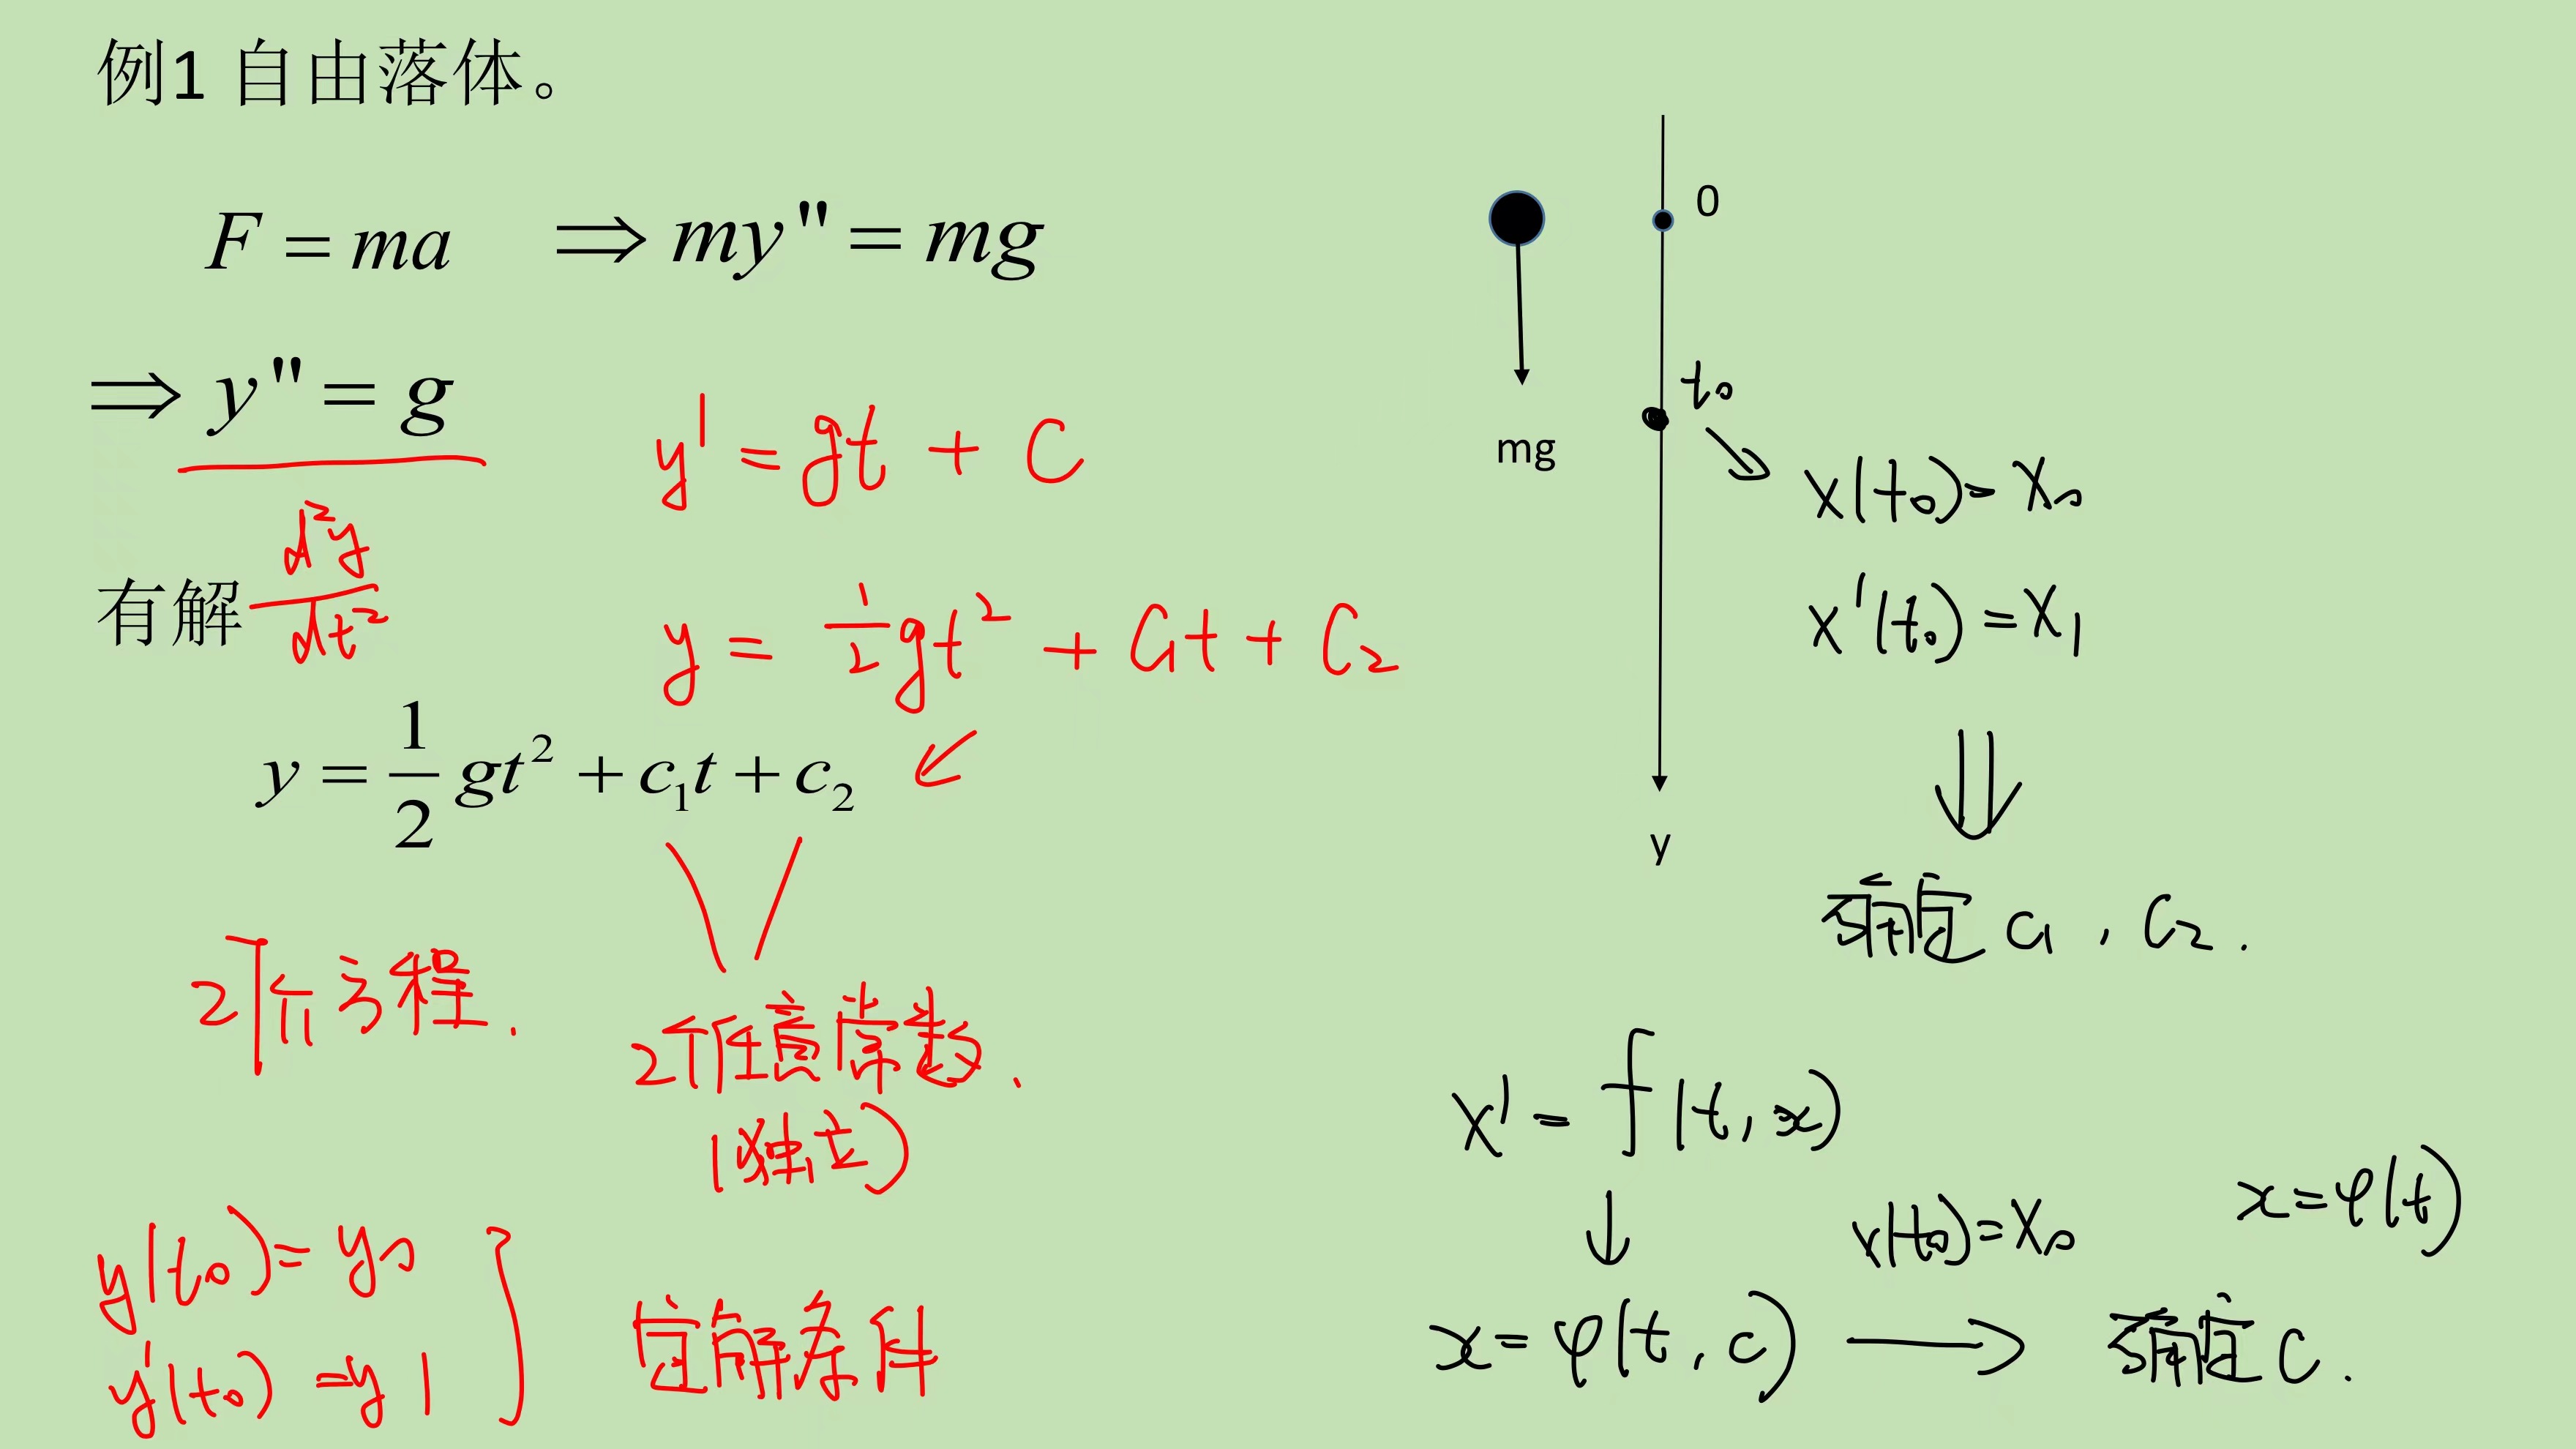 例1 自由落体。
F = ma ⇒ my" = mg
⇒ y" = g
y' = gt + C
d²y
dt²
有解
y = 1/2 gt² + C₁t + C₂
y = 1/2 gt² + c₁t + c₂
2个方程.
2个任意常数.
(独立)
y(t₀) = y₀
y'(t₀) = y₁
定解条件
0
mg
t₀
x(t₀) = x₀
x'(t₀) = x₁
y
确定 C₁, C₂.
x' = f(t, x)
x(t₀) = x₀
x = φ(t)
x = φ(t, c) → 确定 C.